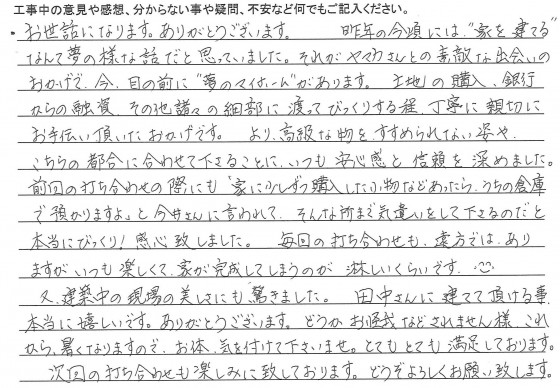 工事中の意見や感想、分からない事や疑問、不安など何でもご記入ください。
・お世話になります。ありがとうございます。 昨年の今頃には、"家を建てる"
なんて夢の様な話だと思っていました。それがヤマカさんとの素敵な出会いの
おかげで、今、目の前に"夢のマイホーム"があります。 土地の購入、銀行
からの融資、その他諸々の細部に渡ってびっくりする程、丁寧に親切に
お手伝い頂いたおかげです。 より、高級な物をすすめられない姿や、
こちらの都合に合わせて下さることに、いつも安心感と信頼を深めました。
前回の打ち合わせの際にも「家に少しずつ購入した小物などあったら、うちの倉庫
で預かりますよ」と今井さんに言われて、そんな所まで気遣いをして下さるのだと
本当にびっくり!感心致しました。 毎回の打ち合わせも、遠方では、あり
ますがいつも楽しくて、家が完成してしまうのが 淋しいくらいです。
又、建築中の現場の美しさにも驚きました。 田中さんに建てて頂ける事、
本当に嬉しいです。ありがとうございます。どうかお怪我などされません様、これ
から、暑くなりますので、お体、気を付けて下さいませ。とてもとても満足しております。
次回の打ち合わせも楽しみに致しております。どうぞよろしくお願い致します。